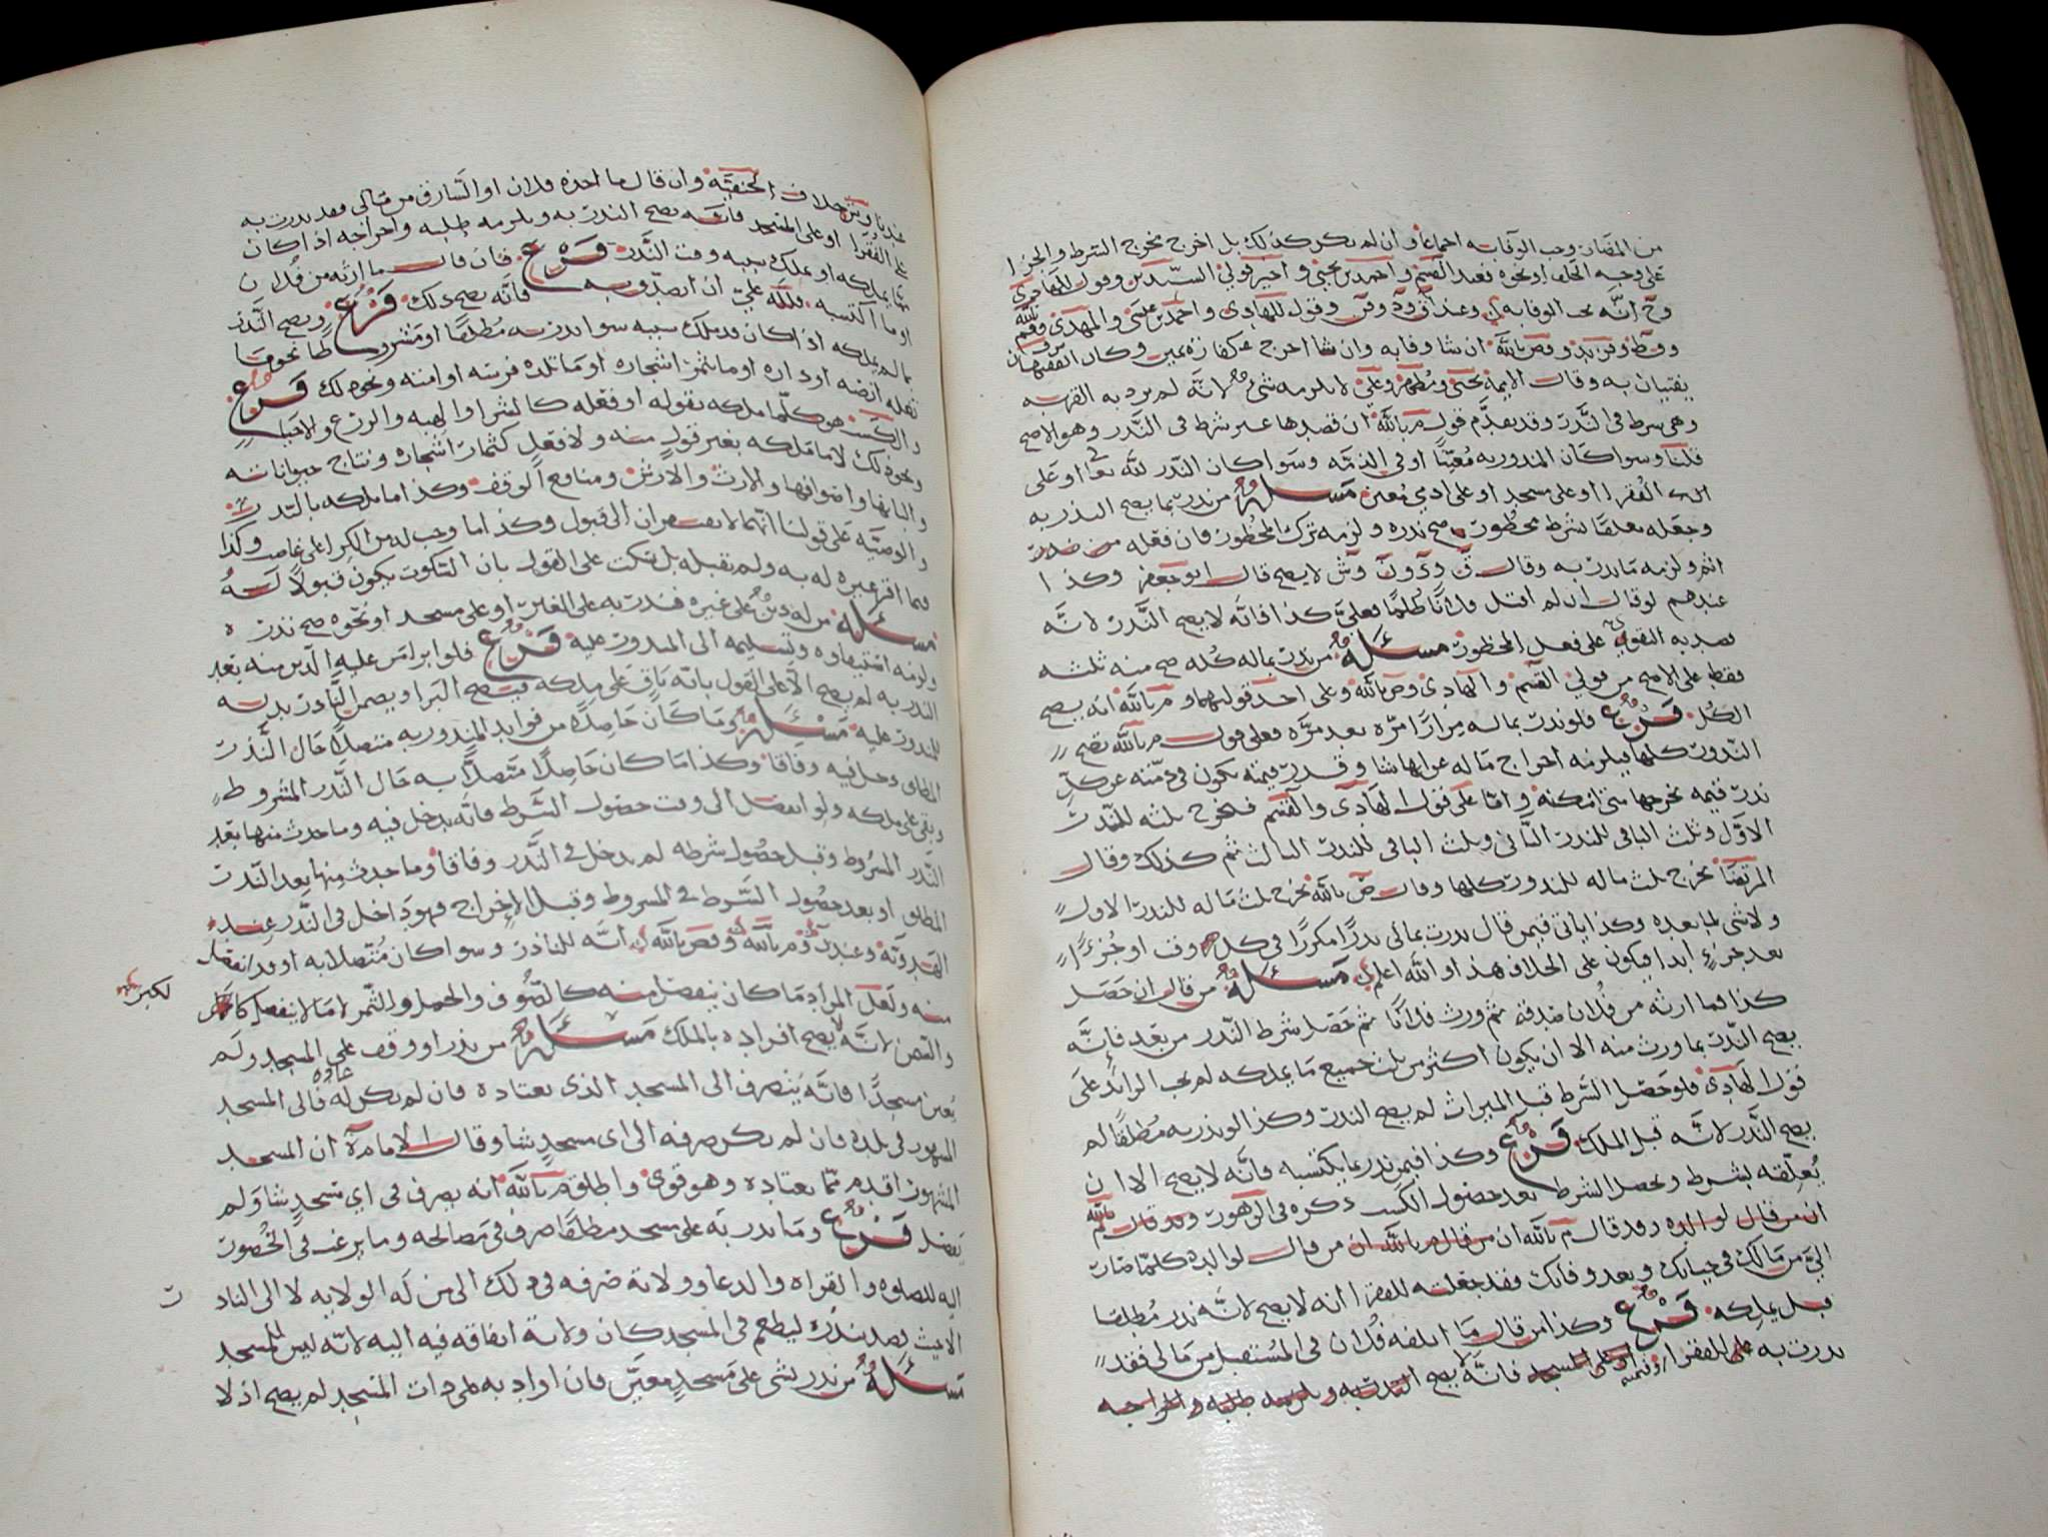 من المضار وجب الوفا به اجماعا وان لم يكن كذلك بل اخرج مخرج الشرط والجزا
على وجه الحلف او نحوه فعند القسم واحمد بن يحيى واخير قولي السيدين وقول للهادي
وح انه يجب الوفا به وعند وقول للهادي واحمد بن عيسى والمهدي
ان شا وفا به وان شا اخرج عنه كفارة يمين وكان الفقيهان
يفتيان به وقالت الايمة يحيى ومطهر وعلي لا يلزمه شيء لانه لم يرد به القربة
وهي شرط في النذر وقد تقدم قول م بالله ان قصدها غير شرط في النذر وهو الاصح
قلنا وسوا كان المنذور به معينا او في الذمة وسوا كان النذر لله تعا او على
الفقرا او على مسجد او على ادمي معين مسئلة من نذر بما يصح النذر به
وجعله معلقا بشرط محظور صح نذره ولزمه ترك المحظور فان فعله
اثم ولزمه ما نذر به وقال لا يصح قال ابو جعفر وكذا
عندهم لو قال ان لم اقتل فلانا ظلما فعلي كذا فانه لا يصح النذر لانه
قصد به التقوي على فعل المحظور مسئلة من نذر بماله كله صح منه ثلثه
فقط على الاصح من قولي القسم والهادي وص بالله وعلى احد قوليهما وم بالله انه يصح
الكل فرع فلو نذر بماله مرارا مرة بعد مرة فعلى قول م بالله تصح
النذور كلها فيلزمه اخراج ماله عن ايها شا وقدر قيمته يكون في ذمته عن كل
نذر قيمة يخرجها متى امكنه واما على قول الهادي والقسم فيخرج ثلثه للنذر
الاول وثلث الباقي للنذر الثاني وثلث الباقي للنذر الثالث ثم كذلك وقال
المرتضا يخرج ثلث ماله للنذور كلها وقال ص بالله يخرج ثلث ماله للنذر الاول
ولا شي لما بعده وكذا ياتي فيمن قال نذرت بمالي نذرا مكررا في كل وقت او جزءا
بعد جزء ابدا فيكون على الخلاف هذا والله اعلم مسئلة من قال ان حصل
كذا فما ارثه من فلان صدقة ثم ورث فلانا ثم حصل شرط النذر من بعد فانه
يصح النذر بما ورث منه الا ان يكون اكثر من ثلث جميع ما يملكه لم يجب الزائد على
قول الهادي فلو حصل الشرط قبل الميراث لم يصح النذر وكذا لو نذر به مطلقا لم
يصح النذر لانه قبل الملك فرع وكذا فيمن نذر بما يكتسبه فانه لا يصح الا ان
يعلقه بشرط ويحصل الشرط بعد حصول الكسب ذكره في الزهور وقد قال م بالله
ان من قال لوالده وقد قال م بالله ان من قال م بالله ان من قال لوالده كلما صار
الي من مالك في حياتك وبعد وفاتك فقد جعلته للفقرا انه لا يصح لانه نذر مطلقا
قبل يملكه فرع وكذا من قال ما اتلفه فلان في المستقبل من مالي فقد
نذرت به على للفقرا او على المسجد فانه لا يصح النذر به ويلزمه طلبه واخراجه
عندنا وش خلاف الحنفية وان قال ما اخذه فلان او السارق من مالي فقد نذرت به
على الفقرا او على المسجد فانه يصح النذر به ويلزمه طلبه واخراجه اذا كان
مما يملكه او يملك سببه وقت النذر فرع فان قال ما ارثه من فلان
او ما اكتسبه فلله علي ان اتصدق به فانه يصح ذلك فرع ويصح النذر
بما لم يملكه اذا كان قد ملك سببه سوا نذر به مطلقا او مشروطا نحو ما
تغله ارضه او داره او ما تثمر اشجاره او ما تلده فرسه او امته ونحو ذلك فرع
والكسب هو كلما ملكه بقوله او فعله كالشرا والهبة والزرع والاحيا
ونحو ذلك لا ما ملكه بغير قول منه ولا فعل كثمار اشجاره ونتاج حيواناته
والبانها واصوافها والارث والارش ومنافع الوقف وكذا ما ملكه بالنذر
والوصية على قولنا انهما لا يفتقران الى قبول وكذا ما وجب له من الكرا على غاصب وكذا
فيما اقر غيره له به ولم يقبله بل سكت على القول بان السكوت يكون قبولا له
مسئلة من له دين على غيره فنذر به على الغير او على مسجد او نحوه صح نذره
ولزمه استيفاوه وتسليمه الى المنذور عليه فرع فلو ابرا من عليه الدين منه بعد
النذر به لم يصح الا على القول بانه باق على ملكه فيصح البرا ويضمن الناذر بدله
للمنذور عليه مسئلة وما كان حاصلا من فوايد المنذور به متصلا حال النذر
المطلق دخل فيه وفاقا وكذا ما كان حاصلا متصلا به حال النذر المشروط
وبقي على ملكه ولو انفصل الى وقت حصول الشرط فانه يدخل فيه وما حدث منها بعد
النذر المشروط وقبل حصول شرطه لم يدخل في النذر وفاقا وما حدث منها بعد النذر
المطلق او بعد حصول الشرط في المشروط وقبل الاخراج فهو داخل في النذر عند
الهدوية وعند م بالله وقص بالله انه للناذر وسوا كان متصلا به او قد انفصل
منه ولعل المراد ما كان ينفصل منه كالصوف والحمل والثمر لا ما لا ينفصل كالكبر
لكبر
والسمن لانه لا يصح افراده بالملك مسئلة من نذر او وقف على المسجد ولم
يعين مسجدا فانه يصرف الى المسجد الذي يعتاده فان لم يكن له عادة فالى المسجد
المشهور في بلده فان لم يكن صرفه الى اي مسجد شا وقال الامام ان المسجد
المشهور اقدم مما يعتاده وهو قوي واطلق م بالله انه يصرف في اي مسجد شا ولم
يفصل فرع وما نذر به على مسجد مطلقا صرف في مصالحه وما يرغب في الحضور
اليه للصلوة والقراة والدعا وولاية صرفه في ذلك الى من له الولاية لا الى الناذ
ر
الا حيث قصد بنذره ليطعم في المسجد كان ولاية انفاقه فيه اليه لانه ليس للمسجد
مسئلة من نذر بشي على مسجد معين فان اراد به لمي ذات المسجد لم يصح اذ لا